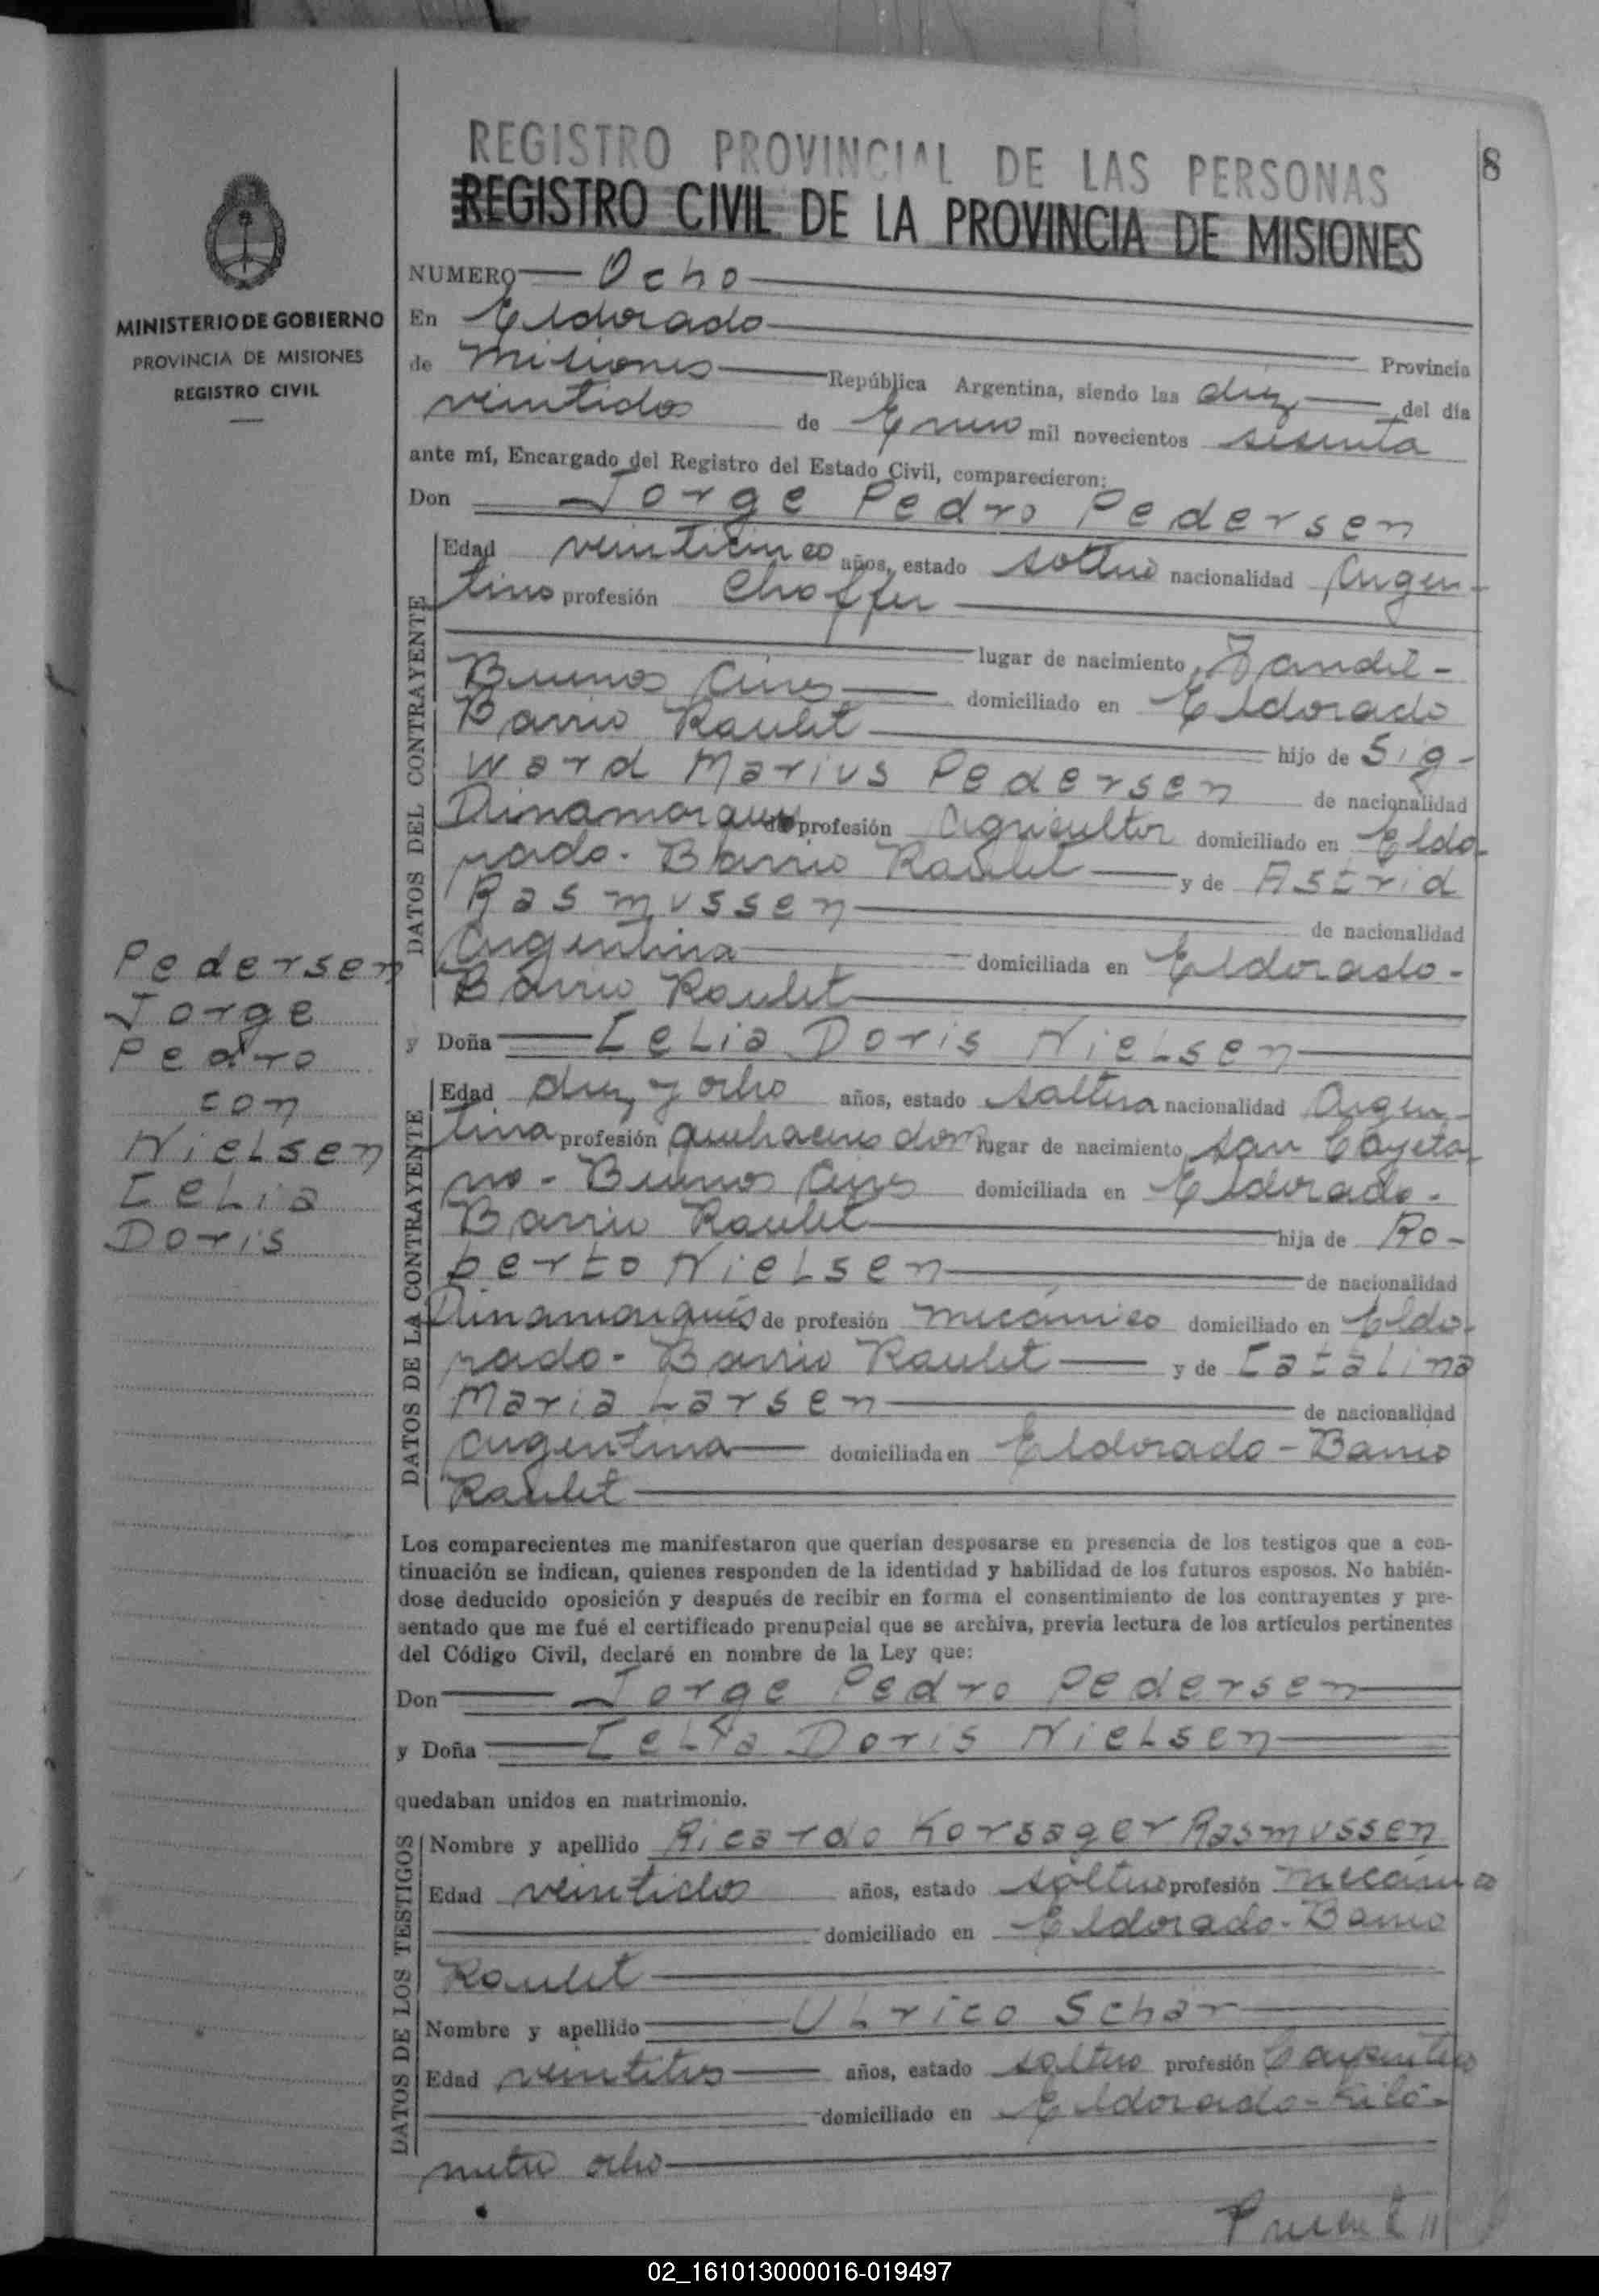 REGISTRO PROVINCIAL DE LAS PERSONAS
8
REGISTRO CIVIL DE LA PROVINCIA DE MISIONES
MINISTERIO DE GOBIERNO
PROVINCIA DE MISIONES
REGISTRO CIVIL
NUMERO Ocho
En Eldorado Provincia
de Misiones República Argentina, siendo las diez del día
veintidos de Enero mil novecientos sesenta
ante mí, Encargado del Registro del Estado Civil, comparecieron:
Don Jorge Pedro Pedersen
DATOS DEL CONTRAYENTE
Edad veinticinco años, estado soltero nacionalidad Argen-
tino profesión Choffer
lugar de nacimiento, Tandil-
Buenos Aires domiciliado en Eldorado
Barrio Raulet hijo de Sig-
ward Marius Pedersen de nacionalidad
Dinamarques de profesión Agricultor domiciliado en Eldo-
rado. Barrio Raulet y de Astrid
Rasmussen de nacionalidad
Argentina domiciliada en Eldorado-
Barrio Raulet
Pedersen
Jorge
Pedro
con
Nielsen
Celia
Doris
y Doña Celia Doris Nielsen
DATOS DE LA CONTRAYENTE
Edad diez y ocho años, estado soltera nacionalidad Argen-
tina profesión quehaceres dom lugar de nacimiento, San Cayeta-
no - Buenos Aires domiciliada en Eldorado.
Barrio Raulet hija de Ro-
berto Nielsen de nacionalidad
Dinamarqués de profesión mecánico domiciliado en Eldo-
rado- Barrio Raulet y de Catalina
Maria Larsen de nacionalidad
Argentina domiciliada en Eldorado - Barrio
Raulet
Los comparecientes me manifestaron que querían desposarse en presencia de los testigos que a con-
tinuación se indican, quienes responden de la identidad y habilidad de los futuros esposos. No habién-
dose deducido oposición y después de recibir en forma el consentimiento de los contrayentes y pre-
sentado que me fué el certificado prenupcial que se archiva, previa lectura de los artículos pertinentes
del Código Civil, declaré en nombre de la Ley que:
Don Jorge Pedro Pedersen
y Doña Celia Doris Nielsen
quedaban unidos en matrimonio.
DATOS DE LOS TESTIGOS
Nombre y apellido Ricardo Korsager Rasmussen
Edad veintidos años, estado soltero profesión mecánico
domiciliado en Eldorado- Barrio
Raulet
Nombre y apellido Ulrico Schar
Edad veintitres años, estado soltero profesión Carpintero
domiciliado en Eldorado- Kiló-
metro ocho
02_161013000016-019497